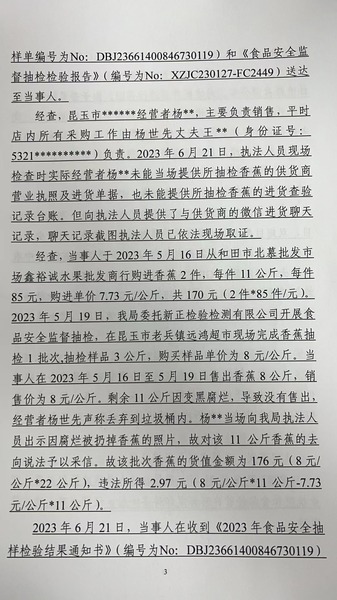 样单编号为No：DBJ23661400846730119）和《食品安全监
督抽检检验报告》（编号为No：XZJC230127-FC2449）送达
至当事人。
经查，昆玉市******经营者杨**，主要负责销售，平时
店内所有采购工作由杨世先丈夫王**（身份证号：
5321**********）负责。2023年6月21日，执法人员现场
检查时实际经营者杨**未能当场提供所抽检香蕉的供货商
营业执照及进货单据，也未能提供所抽检香蕉的进货查验
记录台账。但向执法人员提供了与供货商的微信进货聊天
记录，聊天记录截图执法人员已依法现场取证。
经查，当事人于2023年5月16日从和田市北慕批发市
场鑫裕诚水果批发商行购进香蕉2件，每件11公斤，每件
85元，购进单价7.73元/公斤，共170元（2件*85件/元）。
2023年5月19日，我局委托新正检验检测有限公司开展食
品安全监督抽检，在昆玉市老兵镇远鸿超市现场完成香蕉抽
检1批次,抽检样品3公斤，购买样品单价为8元/公斤。当
事人在2023年5月16日至5月19日售出香蕉8公斤，销
售价为8元/公斤。剩余11公斤因变黑腐烂，导致没有售出，
经营者杨世先声称丢弃到垃圾桶内。杨**当场向我局执法人
员出示因腐烂被扔掉香蕉的照片，故对该11公斤香蕉的去
向说法予以采信。故该批次香蕉的货值金额为176元（8元/
公斤*22公斤），违法所得2.97元（8元/公斤*11公斤-7.73
元/公斤*11公斤）。
2023年6月21日，当事人在收到《2023年食品安全抽
样检验结果通知书》（编号为No：DBJ23661400846730119）
3